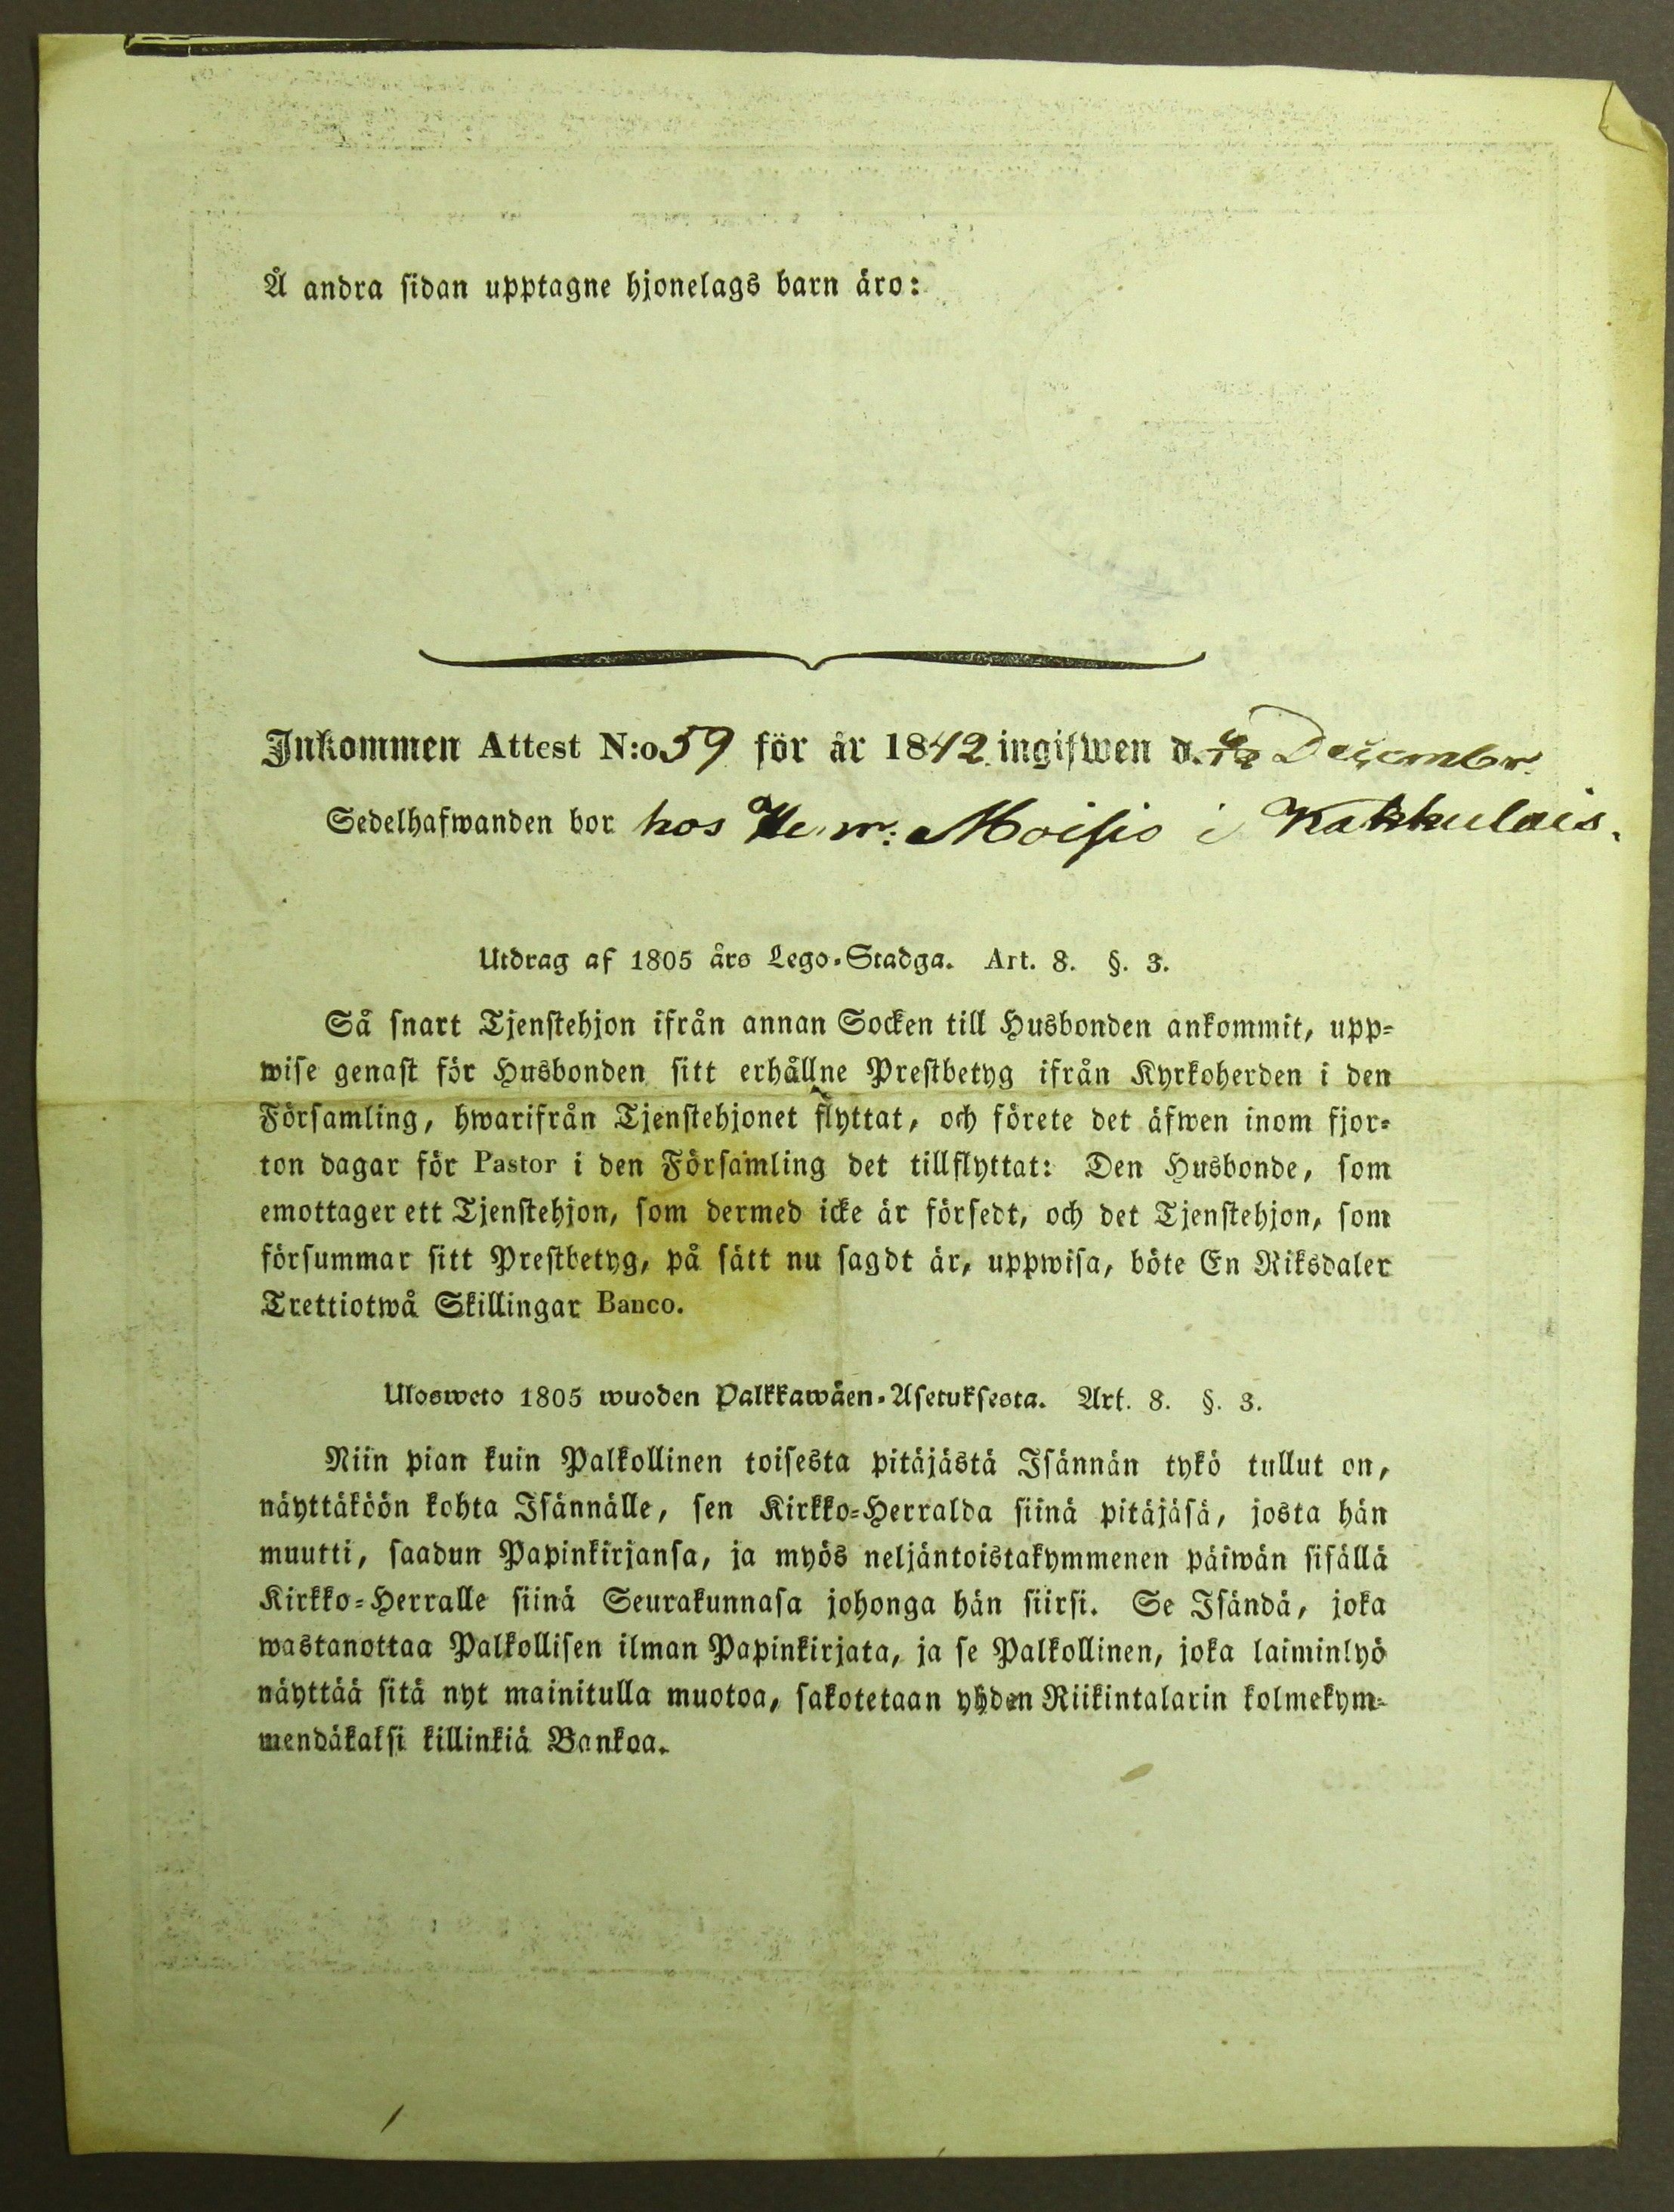 Å andra sidan upptagne hjonelags barn äro:
Inkommen Attest N:o 59 för år 1842 ingifwen d. Decembr.
Sedelhafwanden bor hos Moisio i Kakkulais.
Utdrag af 1805 års Lego-Stadga. Art. 8. §. 3.
Så snart Tjenstehjon ifrån annan Socken till Husbonden ankommit, upp-
wise genast för Husbonden sitt erhållne Prestbetyg ifrån Kyrkoherden i den
Församling, hwarifrån Tjenstehjonet flyttat, och förete det äfwen inom fjor-
ton dagar för Pastor i den Församling det tillflyttat: Den Husbonde, som
emottager ett Tjenstehjon, som dermed icke är försedt, och det Tjenstehjon, som
försummar sitt Prestbetyg, på sätt nu sagdt är, uppwisa, böte En Riksdaler
Trettiotwå Skillingar Banco.
Ulosweto 1805 wuoden Palkkawäen-Asetuksesta. Art. 8. §. 3.
Niin pian kuin Palkollinen toisesta pitäjästä Isännän tykö tullut on,
näyttäköön kohta Isännälle, sen Kirkko-Herralda siinä pitäjäsä, josta hän
muutti, saadun Papinkirjansa, ja myös neljäntoistakymmenen päiwän sisällä
Kirkko-Herralle siinä Seurakunnasa johonga hän siirsi. Se Isändä, joka
wastanottaa Palkollisen ilman Papinkirjata, ja se Palkollinen, joka laiminlyö
näyttää sitä nyt mainitulla muotoa, sakotetaan yhden Riikintalarin kolmekym-
mendäkaksi killinkiä Bankoa.